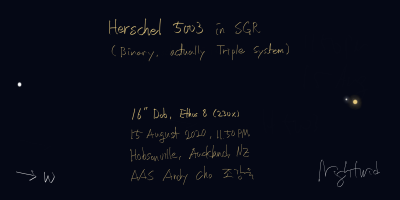 Herschel 5003 in SGR
(Binary, actually Triple System)
16" Dob, Ethos 8 (230x)
15 August 2020, 11.50PM
Hobsonville, Auckland, NZ
AAS Andy Cho 조강욱
→ W
Nightwid